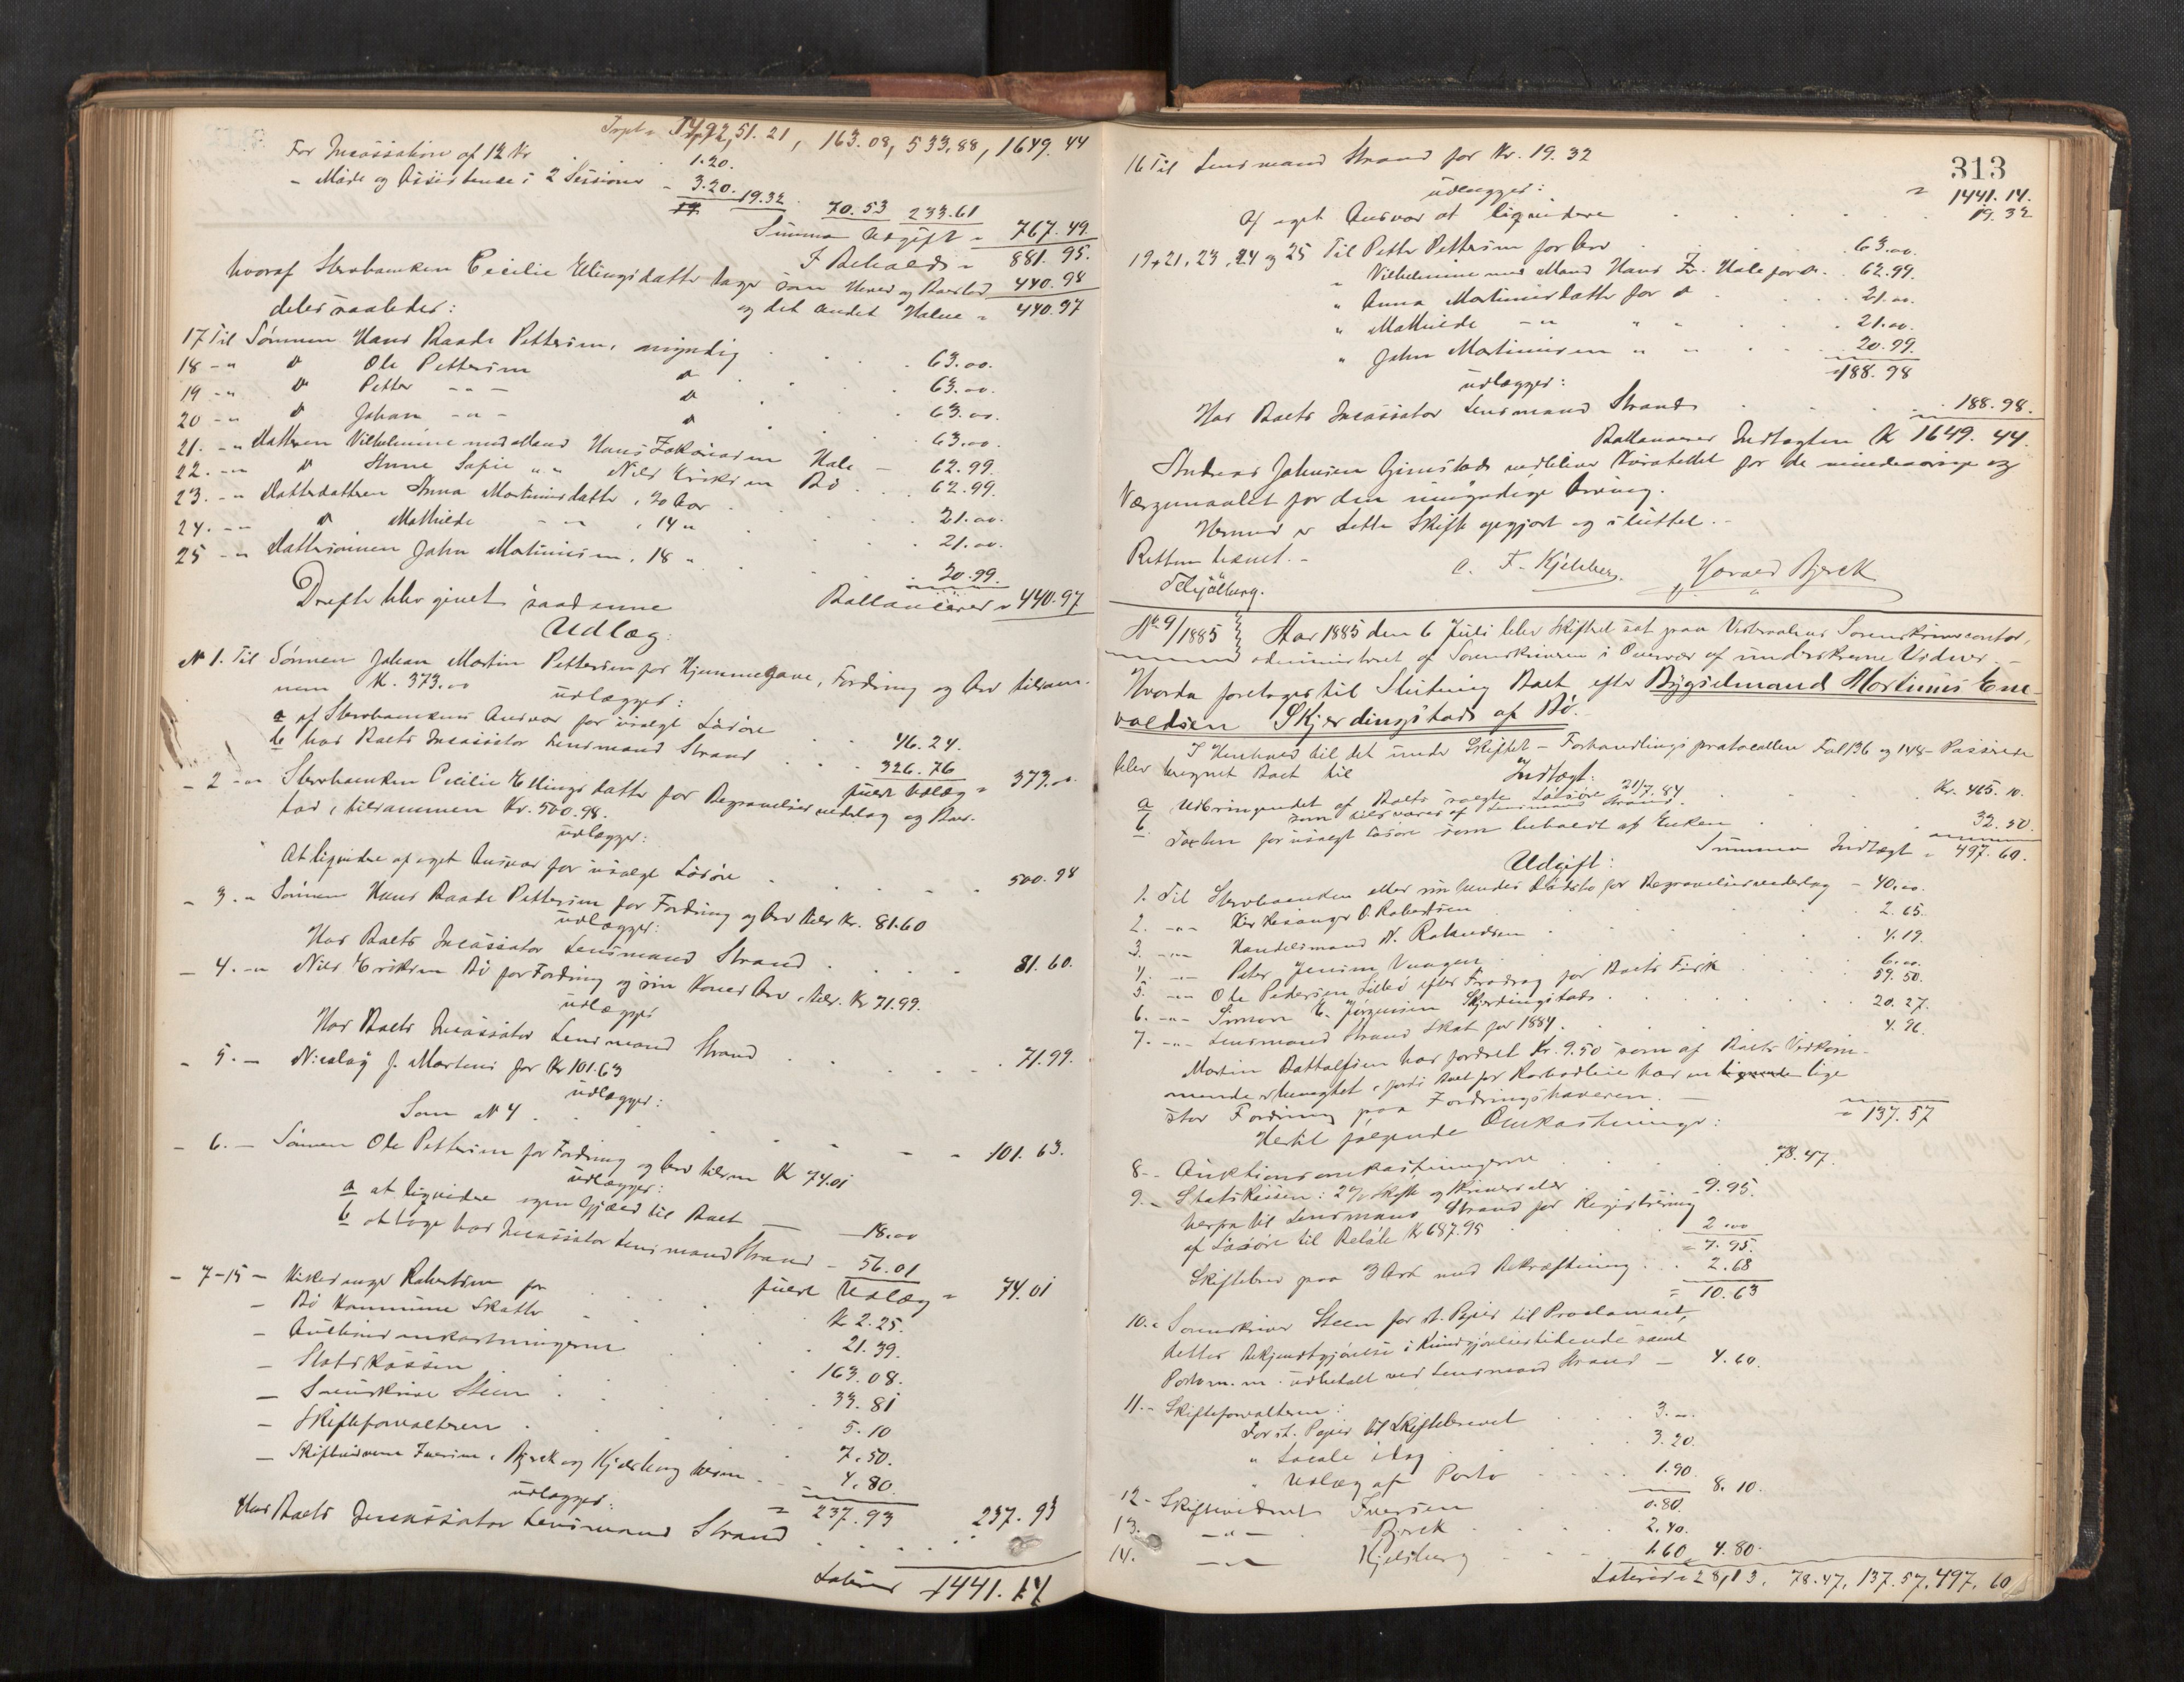 Trpt = 14.92, 51.21, 163.08, 533.88, 1649.44
For Incassation af 12 Kr 1.20.
- Møde og Assistence i 2 Sessioner - 3.20. 19.32. 70.53 233.61
Summa Udgift = 767.49.
I Behold = 881.95.
hvoraf Stervboenken Cecilie Ellingsdatter tager som Hoved og Boeslod 440.98
og det andet Halve = 440.97
deles saaledes:
17 Til Sønnen Hans Baade Pettersen, myndig 63.00.
18 - " do Ole Pettersen do 63.00.
19 - " do Petter - " - do 63.00.
20 - " do Johan - " - do 63.00.
21. - " Datteren Vilhelmine med Mand Hans Zakariassen Hals - 62.99.
22. - " do Anne Sofie " " Nils Eriksen Bø 62.99.
23. - " Datterdatteren Anna Martinusdatter, 20 Aar 21.00.
24. - " do Mathilde - " - , 14 " 21.00.
25 - " Dattersønnen John Martinusen, 18 " 20.99.
Ballancerer = 440.97
Derefter blev givet saadanne
Udlæg:
No 1. Til Sønnen Johan Martin Pettersen for Hjemmegave, Fordring og Arv tilsam-
men Kr. 373.00
udlægges:
a af Stervboenkens Ansvar for usolgt Løsøre 46.24.
b hos Boets Incassator Lensmand Strand 326.76
fuldt Udlæg = 373.00
- 2 - " Stervboenken Cecilie Ellingsdatter for Begravelsesvederlag og Boes-
lod, tilsammen Kr. 500.98.
udlægges:
At liqvidere af eget Ansvar for usolgt Løsøre 500.98
- 3. " Sønnen Hans Baade Pettersen for Fordring og Arv tils. Kr. 81.60
udlægges:
Hos Boets Incassator Lensmand Strand 81.60.
- 4. - " Nils Eriksen Bø for Fordring og sin Kones Arv, tils. Kr 71.99.
udlægges
Hos Boets Incassator Lensmand Strand 71.99.
- 5. - Nicolay J. Martens for Kr 101.63
udlægges:
Som No 4 101.63.
- 6. - Sønnen Ole Pettersen for Fordring og Arv tilsm Kr 74.01
udlægges:
a at liqvidere egen Gjæld til Boet 18.00
b at tage hos Incassator Lensmand Strand - 56.01
fuldt Udlæg = 74.01
- 7-15 - Kirkesanger Robertsen for Kr 2.25.
- Bø Kommune Skatter 21.39.
- Auctionsomkostningerne 163.08.
- Statskassen 33.81
- Sorenskriver Steen 5.10
- Skifteforvalteren 7.50.
- Skiftevidnerne Iversen, Bjerck og Kjelsberg tilsm 4.80.
udlægges: = 237.93
Hos Boets Incassator Lensmand Strand 237.93
Lateris 1441.14
313
16 Til Lensmand Strand for Kr. 19.32
= 1441.14.
udlægges:
Af eget Ansvar at liqvidere 19.32
19, 21, 23, 24 og 25 Til Petter Pettersen for Arv 63.00.
" Vilhelmine med Mand Hans Z. Hals for do 62.99.
" Anna Martinusdatter for do 21.00.
" Mathilde - " " " 21.00.
" John Martinusen " " 20.99.
= 188.98
udlægges:
Hos Boets Incassator Lensmand Strand 188.98.
Ballancerer Indtægten Kr 1649.44.
Andreas Johnsen Gimstad vedbliver Kuratellet for de mindreaarige og
Værgemaalet for den umyndige Arving.
Hermed er dette Skifte opgjort og sluttet. -
Retten hævet. -
C. F. Kjelsberg. Harald Bjerck
No 9/1885 Aar 1885 den 6 Juli blev Skifteret sat paa Vesteraalens Sorenskrivercontor,
administreret af Sorenskriveren i Overvær af underskrevne Vidner. -
Hvorda foretoges til Slutning Boet efter Bygselmand Martinus Ene-
voldsen Skjerdingstad af Bø.
I Henhold til det under Skiftet - Forhandlingsprotocollen Fol 136 og 148 - Passerede
blev beregnet Boet til
Indtægt:
a Udbringendet af Boets solgte Løsøre 21/7.84 Kr. 465.10.
som tilsvares af Lensmand Strand.
b. Taxten for usolgt Løsøre som beholdt af Enken 32.50.
Summa Indtægt = 497.60.
Udgift:
1. Til Stervboenken eller sin hendes Dødsbo for Begravelsesvederlag - 40.00.
2. - " - Kirkesanger O. Robertsen 2.65.
3. - " - Handelsmand N. Rolandsen 4.19.
4. - " - Peter Jensen Vaagen 6.00.
5. - " - Ole Pedersen Lillebø efter Fradrag for Boets Fisk 59.50.
6. - " - Simon E. Jørgensen Skjerdingstad 20.27.
7. - " - Lensmand Strand Skat for 1884 4.96.
= 137.57
Martin Battolfsen har fordret Kr. 9.50 som af Boets Vedkom-
mende er benægtet, fordi Boet for Rorbodleie har en lignende lige
stor Fordring paa Fordringshaveren. -
Hertil følgende Omkostninger:
8 - Auktionsomkostningerne 78.47.
9. - Statskassen: 2% Skifte og Skriversaler 9.95.
herfra til Lensmand Strand for Registrering
af Løsøre til Beløb Kr 687.95 2.00
= 7.95.
Skiftebrev paa 3 Ark med Bekræftning 2.68
= 10.63
10. - Sorenskriver Steen for st. Papir til Proclamaet,
dettes Bekjendtgjørelse i Kundgjørelsestidende samt
Porto m. m. udbetalt ved Lensmand Strand - 4.60.
11. - Skifteforvalteren:
For st. Papir til Skiftebrevet 3.00.
" Locale idag 3.20.
" Udlæg af Porto 1.90. 8.10.
12 - Skiftevidnet Iversen 0.80
13. - " - Bjerck 2.40.
14. - " - Kjelsberg 1.60 4.80.
Lateris = 28.13. 78.47, 137.57, 497.60